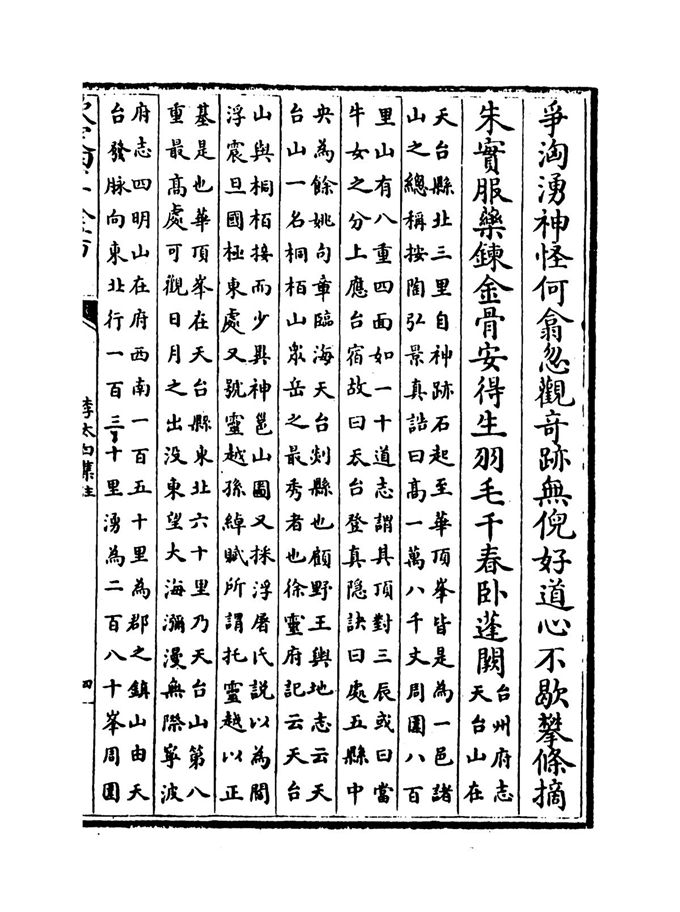 爭洶湧神怪何翕忽觀竒跡無倪好道心不歇攀條摘
朱實服藥鍊金骨安得生羽毛千春卧蓬闕
台州府志
天台山在
天台縣北三里自神跡石起至華頂峯皆是為一邑諸
山之總稱按陶弘景真誥曰高一萬八千丈周圍八百
里山有八重四面如一十道志謂其頂對三辰或曰當
牛女之分上應台宿故曰天台登真隱訣曰處五縣中
央為餘姚句章臨海天台剡縣也顧野王輿地志云天
台山一名桐栢山衆岳之最秀者也徐靈府記云天台
山與桐栢接而少異神邕山圖又採浮屠氏説以為閻
浮震旦國極東處又號靈越孫綽賦所謂托靈越以正
基是也華頂峯在天台縣東北六十里乃天台山第八
重最高處可觀日月之出没東望大海瀰漫無際寧波
府志四明山在府西南一百五十里為郡之鎮山由天
台發脉向東北行一百三十里湧為二百八十峯周圍
李太白集注
四